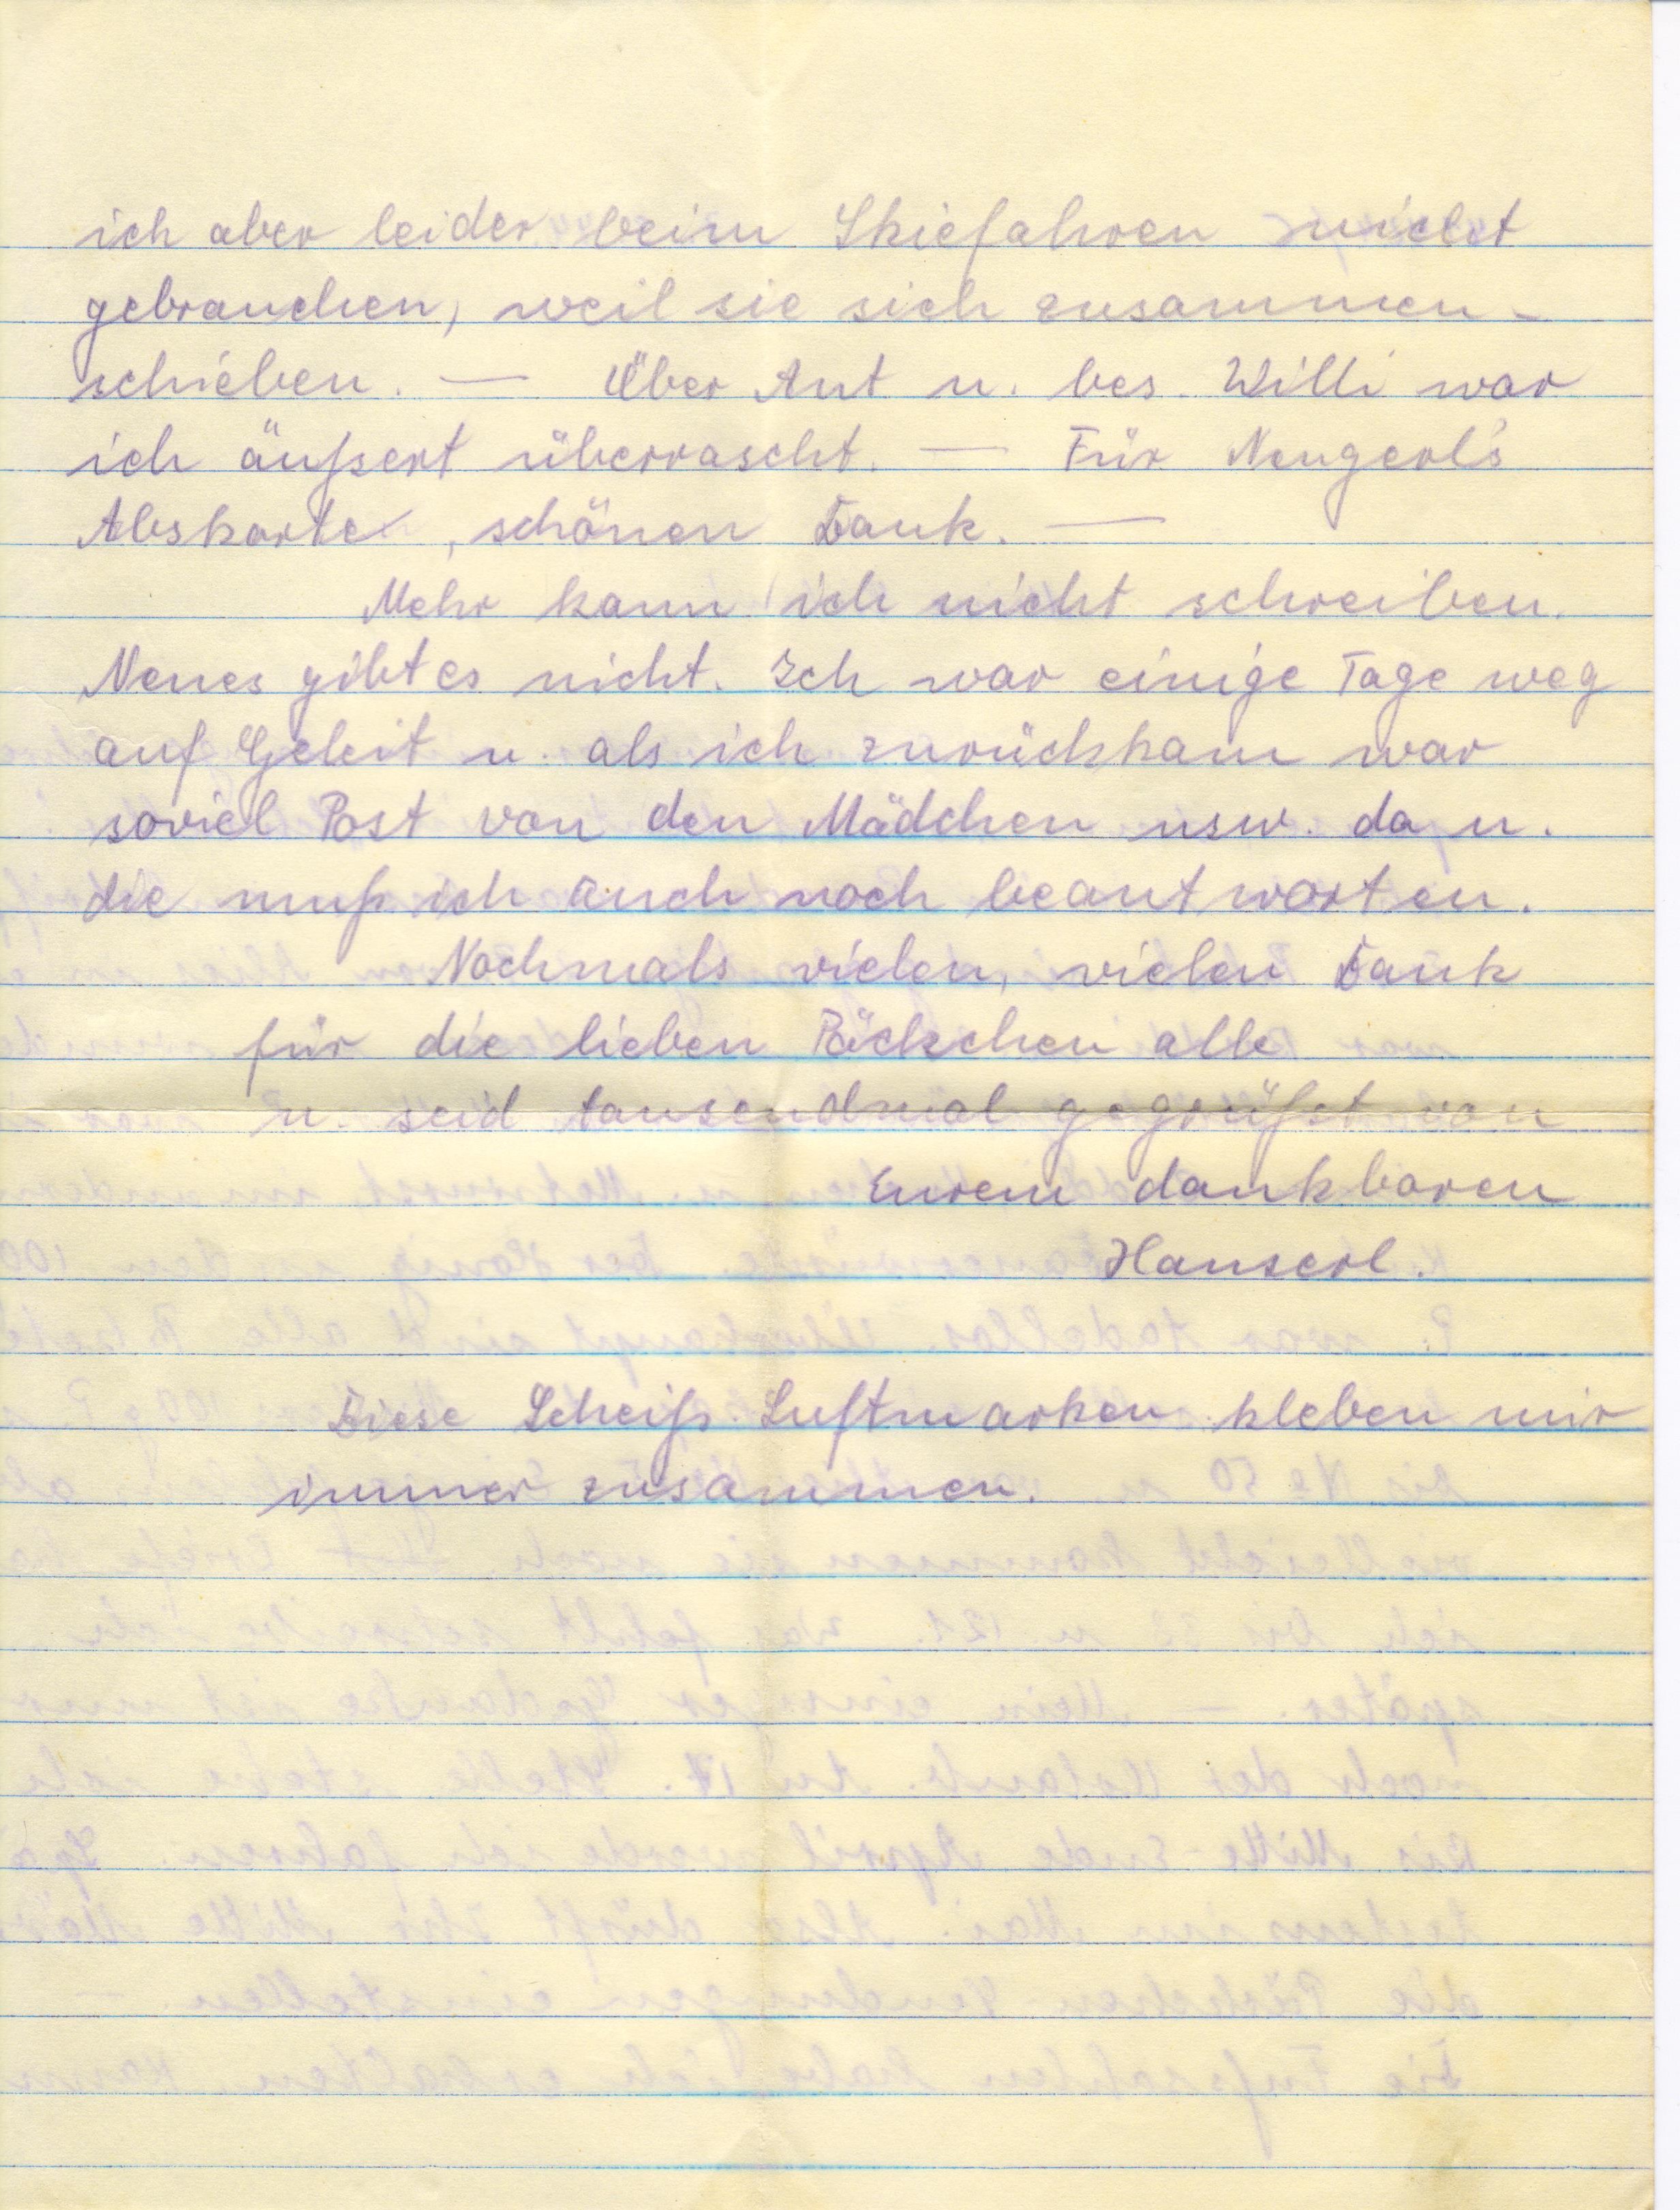 ich aber leider beim Skiefahren nicht
gebrauchen, weil sie sich zusammen-
schieben. — Über Ant u. bes. Willi war
ich äußert überrascht. — Für Neugerl's
Abskarte, schönen Dank. —
Mehr kann ich nicht schreiben.
Neues gibt es nicht. Ich war einige Tage weg
auf Geleit u. als ich zurückkam war
soviel Post von den Mädchen usw. da u.
die muß ich auch noch beantworten.
Nochmals vielen, vielen Dank
für die lieben Päckchen alle
u. seid tausendmal gegrüßt von
Eurem dankbaren
Hanserl.
Diese Scheiß Luftmarken kleben mir
immer zusammen.